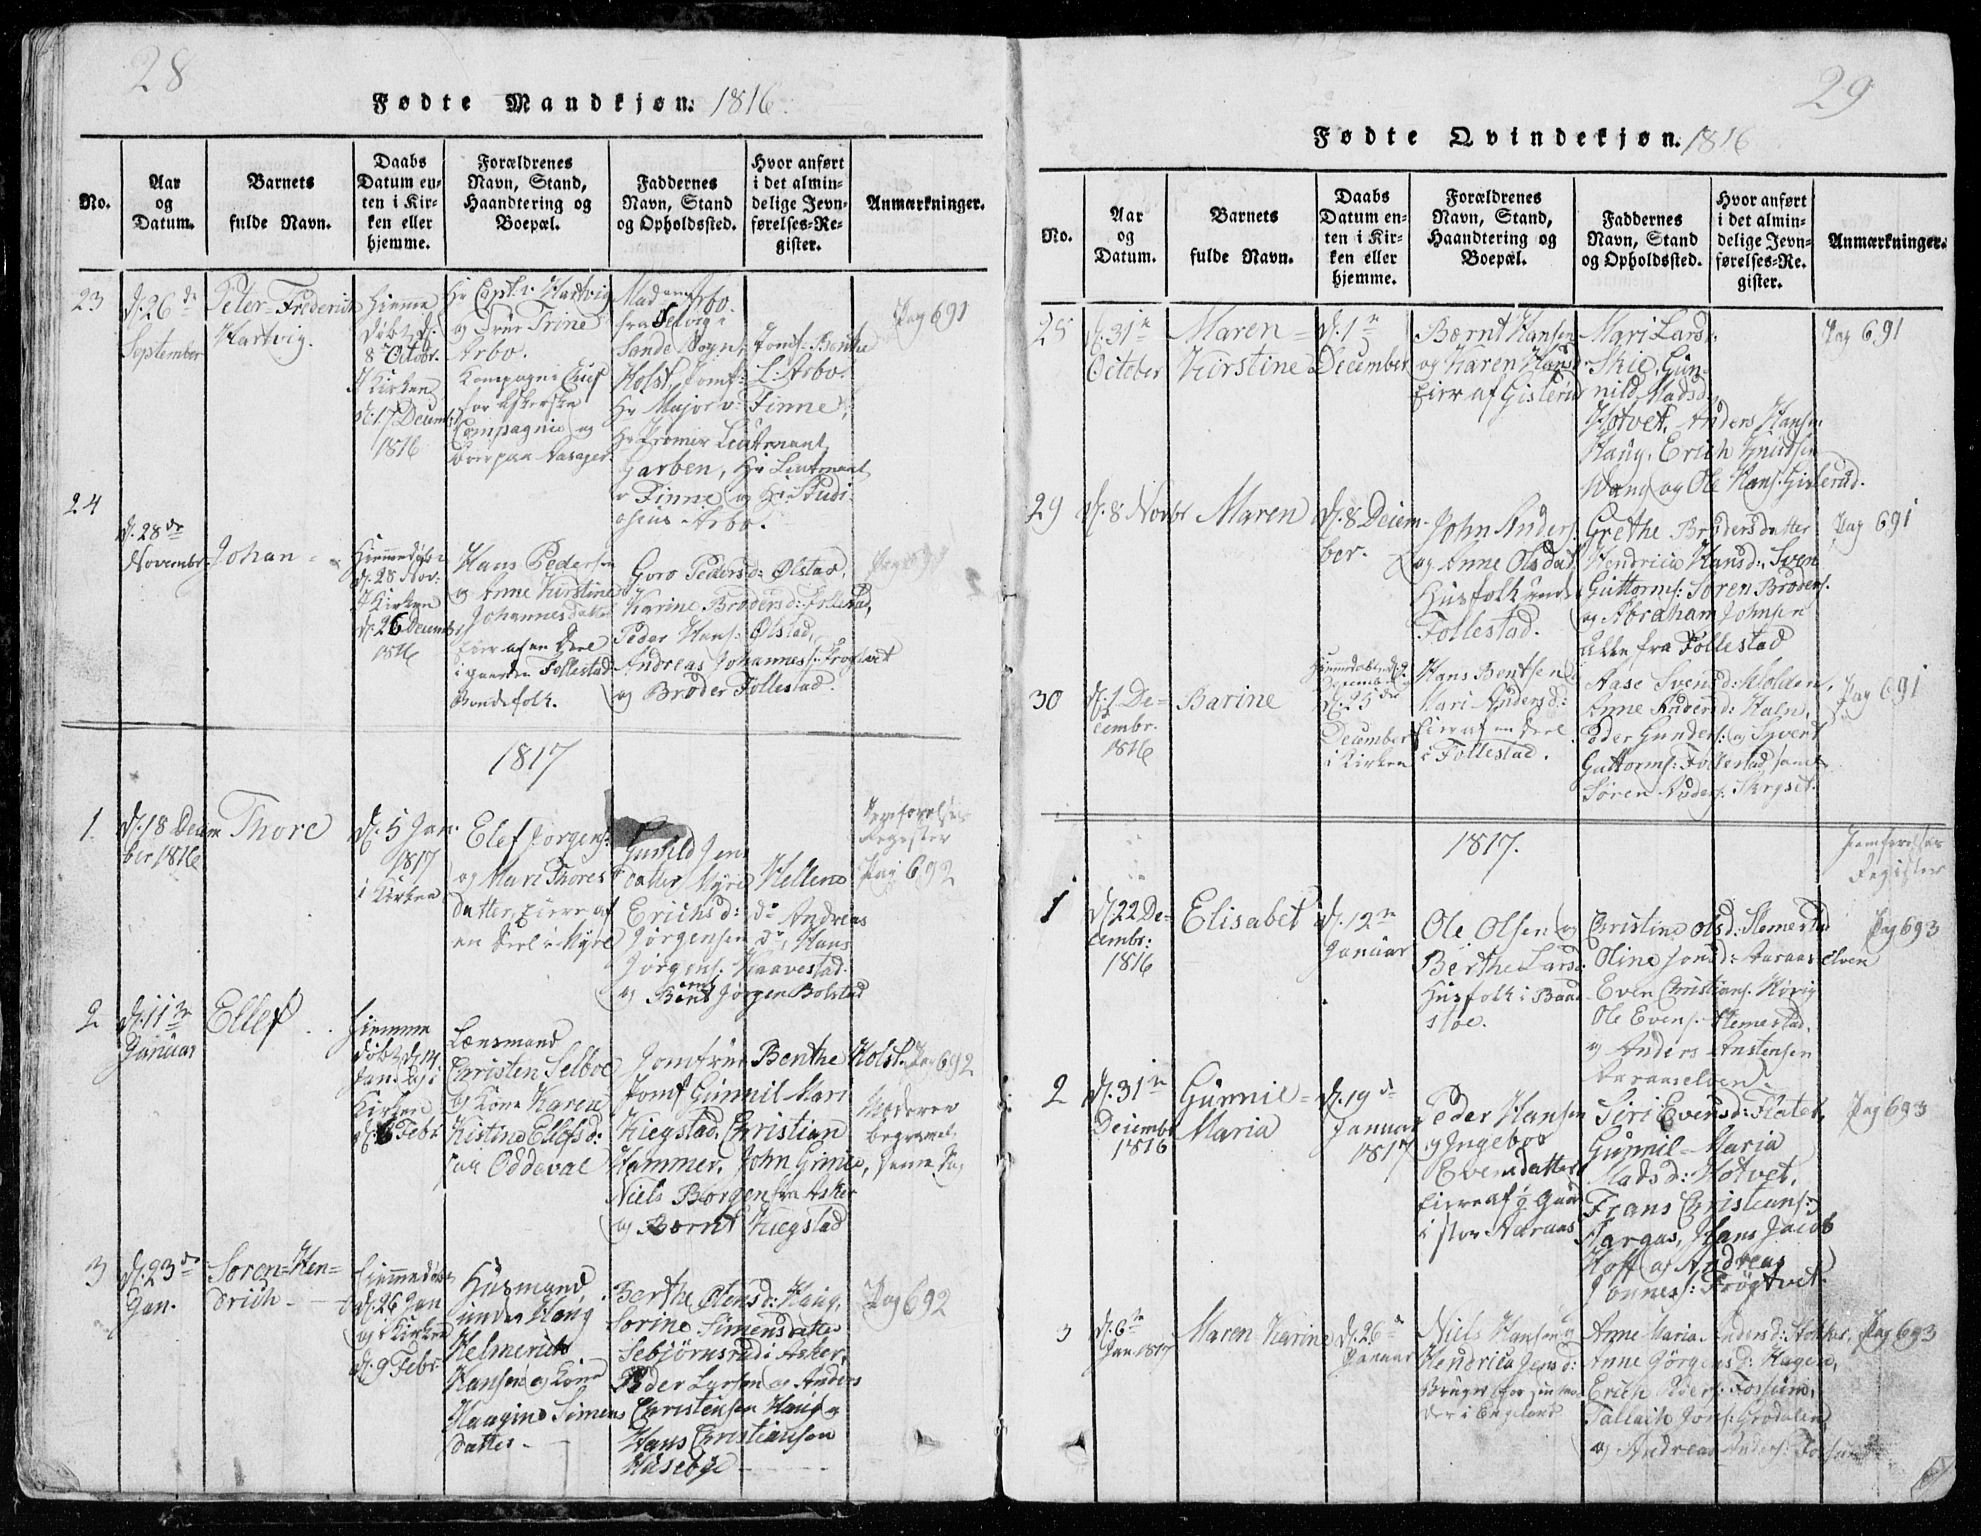 28
Fødte Mandkjøn. 1816.
No.
Aar
og
Datum.
Barnets
fulde Navn.
Daabs
Datum en-
ten i Kir-
ken eller
hjemme.
Forældrenes
Navn, Stand,
Haandtering og
Boepæl.
Faddernes
Navn, Stand
og Opholdssted.
Hvor anført
i det almin-
delige Jevn-
førelses-Re-
gister.
Anmærkninger.
23
d. 26de
September
Peter-Frederich
Hartvig.
Hjemme
døbt d.
8 Octobr.
I Kirken
d. 17 Decembr
1816
Hr Capt. v. Hartvig
og Frue Trine
Arbo.
Compagnie Chef
for Askerske
Compagnie og
Mad me Arbo.
fra Selvig i
Sande Sogn, Jomf. Benthe
Holst, Jomf: L. Arbo.
Hr Major v: Finne,
Hr Premier Lieutenant
Garben, Hr Lieutenant
v Finne og Hr Studi-
osus Arbo.
Pag 691
24
d. 28de
Novembr.
Johan
Hjemmedøbt
d. 28 Nov.
I Kirken
d. 26 Decembr
1816
Hans Pedersen
og Anne Kirstine
Johannesdatter
Eier af en Deel
i gaarden Follestad
Bondefolk.
Goro Pedersd: Ølstad,
Karine Brodersd: Follestad,
Peder Hans: Ølstad,
Andreas Johannes: Frøgtvet
og Broder Follestad.
1817
1.
d. 18 Decem
ber 1816
Thore
d. 5 Jan.
1817
i Kirken
Elef Jorgens:
og Mari Thores
datter, Eiere af
en Deel i Myre
Gunild Jens
datter Myre Hellene
Erichsd: do Andreas
Jørgensen do, Hans
Jørgens: Haavestad.
og Bent Jørgen Bolstad
Jevnførelses
Register
Pag 692
2
d. 11te
Januar
Ellef
Hjemme
døbt d. 14
Jan. og i
Kirken
d. 6 Febr
Lænsmand
Christen Selboe
og Kone Karen
Kistine Ellefsd:
paa Oddeval
Jomfrue Benthe Holst.
Jomf Gunnil Mari
Kiegstad, Christian
Hammer, John Grinie,
Niels Borgen fra Asker
og Bernt Kiegstad
Pag 692
Moderen
begravet
samme Dag
3
d. 23de
Jan.
Soren-Hen-
drich
Hjemmedøbt
d. 26 Jan
og i Kirken
d. 9 Febr.
Husmand
under Haug
Helmerich
Hansen og Kone
Haagine Simens
datter
Berthe Olensd: Haug,
Sorine Simensdatter
Sebjørnsrud i Asker,
Peder Larsen og Anders
Christensen Haug og
Hans Christiansen
Husebye
Pag 692
29
Fødte Qvindekjøn. 1816
No.
Aar
og
Datum.
Barnets
fulde Navn.
Daabs
Datum en-
ten i Kir-
ken eller
hjemme.
Forældrenes
Navn, Stand,
Haandtering og
Boepæl.
Faddernes
Navn, Stand
og Opholdssted.
Hvor anført
i det almin-
delige Jevn-
førelses-Re-
gister.
Anmærkninger.
d. 31te
October
Maren
Kirstine
d. 1te
December
Bernt Hansen
og Karen Hansd
Eier af Gisterud
Mari Lars:
Skie, Gun-
nild Madsd.
Hotvet, Anders Hansen
Haug, Erich Knudsen
Wang og Ole Hans: Gisterud.
Pag 691
29
d. 8 Novbr
Maren
d. 8 Decem-
ber.
John Anders:
og Anne Olsdat
Husfolk under
Follestad.
Grethe Brodersdatter
Hendrica Hansd: Sven
Guttorms: Soren Broders:
og Abraham Johnsen
alle fra Follestad
Pag 691
30
d. 1 De-
cembr.
1816
Barine
25de
December
i Kirken
Hans Bentsen
Mari Andersd:
Eier af en Deel
i Follestad.
Aase Svensd: Holden,
Anne Andersd: Haln,
Peder Gunders: og Syvert
Guttorms: Follestad, samt
Søren Anders: Skryset.
Pag 691
1817.
Jevnførelses
Register
1
d. 22 De-
cembr:
1816
Elisabet
d. 12te
Januar
Ole Olsen og
Berthe Larsd:
Husfolk i Baad-
støe.
Christine Olsd: Slemestad
Oline Jonsd: Aaraaselven
Even Christians: Rørig
Ole Evens: Slemestad,
og Anders Anstensen
Aaraaselven.
Pag 693
2
d. 31te
Decembr
1816
Gunnil-
Maria
d. 19de
Januar
1817
Peder Hansen
og Ingebor
Evensdatter
Eiere af ½ Gaard
i stor Aaraas
Siri Evensd: Flatet,
Gunnil-Maria
Madsd: Hotvet,
Frans Christians:
Aaraas, Hans Jacob
Hoff og Andreas
Jonnes: Frøgtvet.
Pag 693
3
d. 6te
Jan. 1817
Maren Karine
d. 26de
Januar
Niels Hansen og
Hendrica Jensd:
Anne Maria Andersd: Stokker
Anne Jørgensd: Hagen,
Erich Peders: Fossum,
Tallach Jons: Grodalen
og Andreas Anders: Fossum
Pag 693